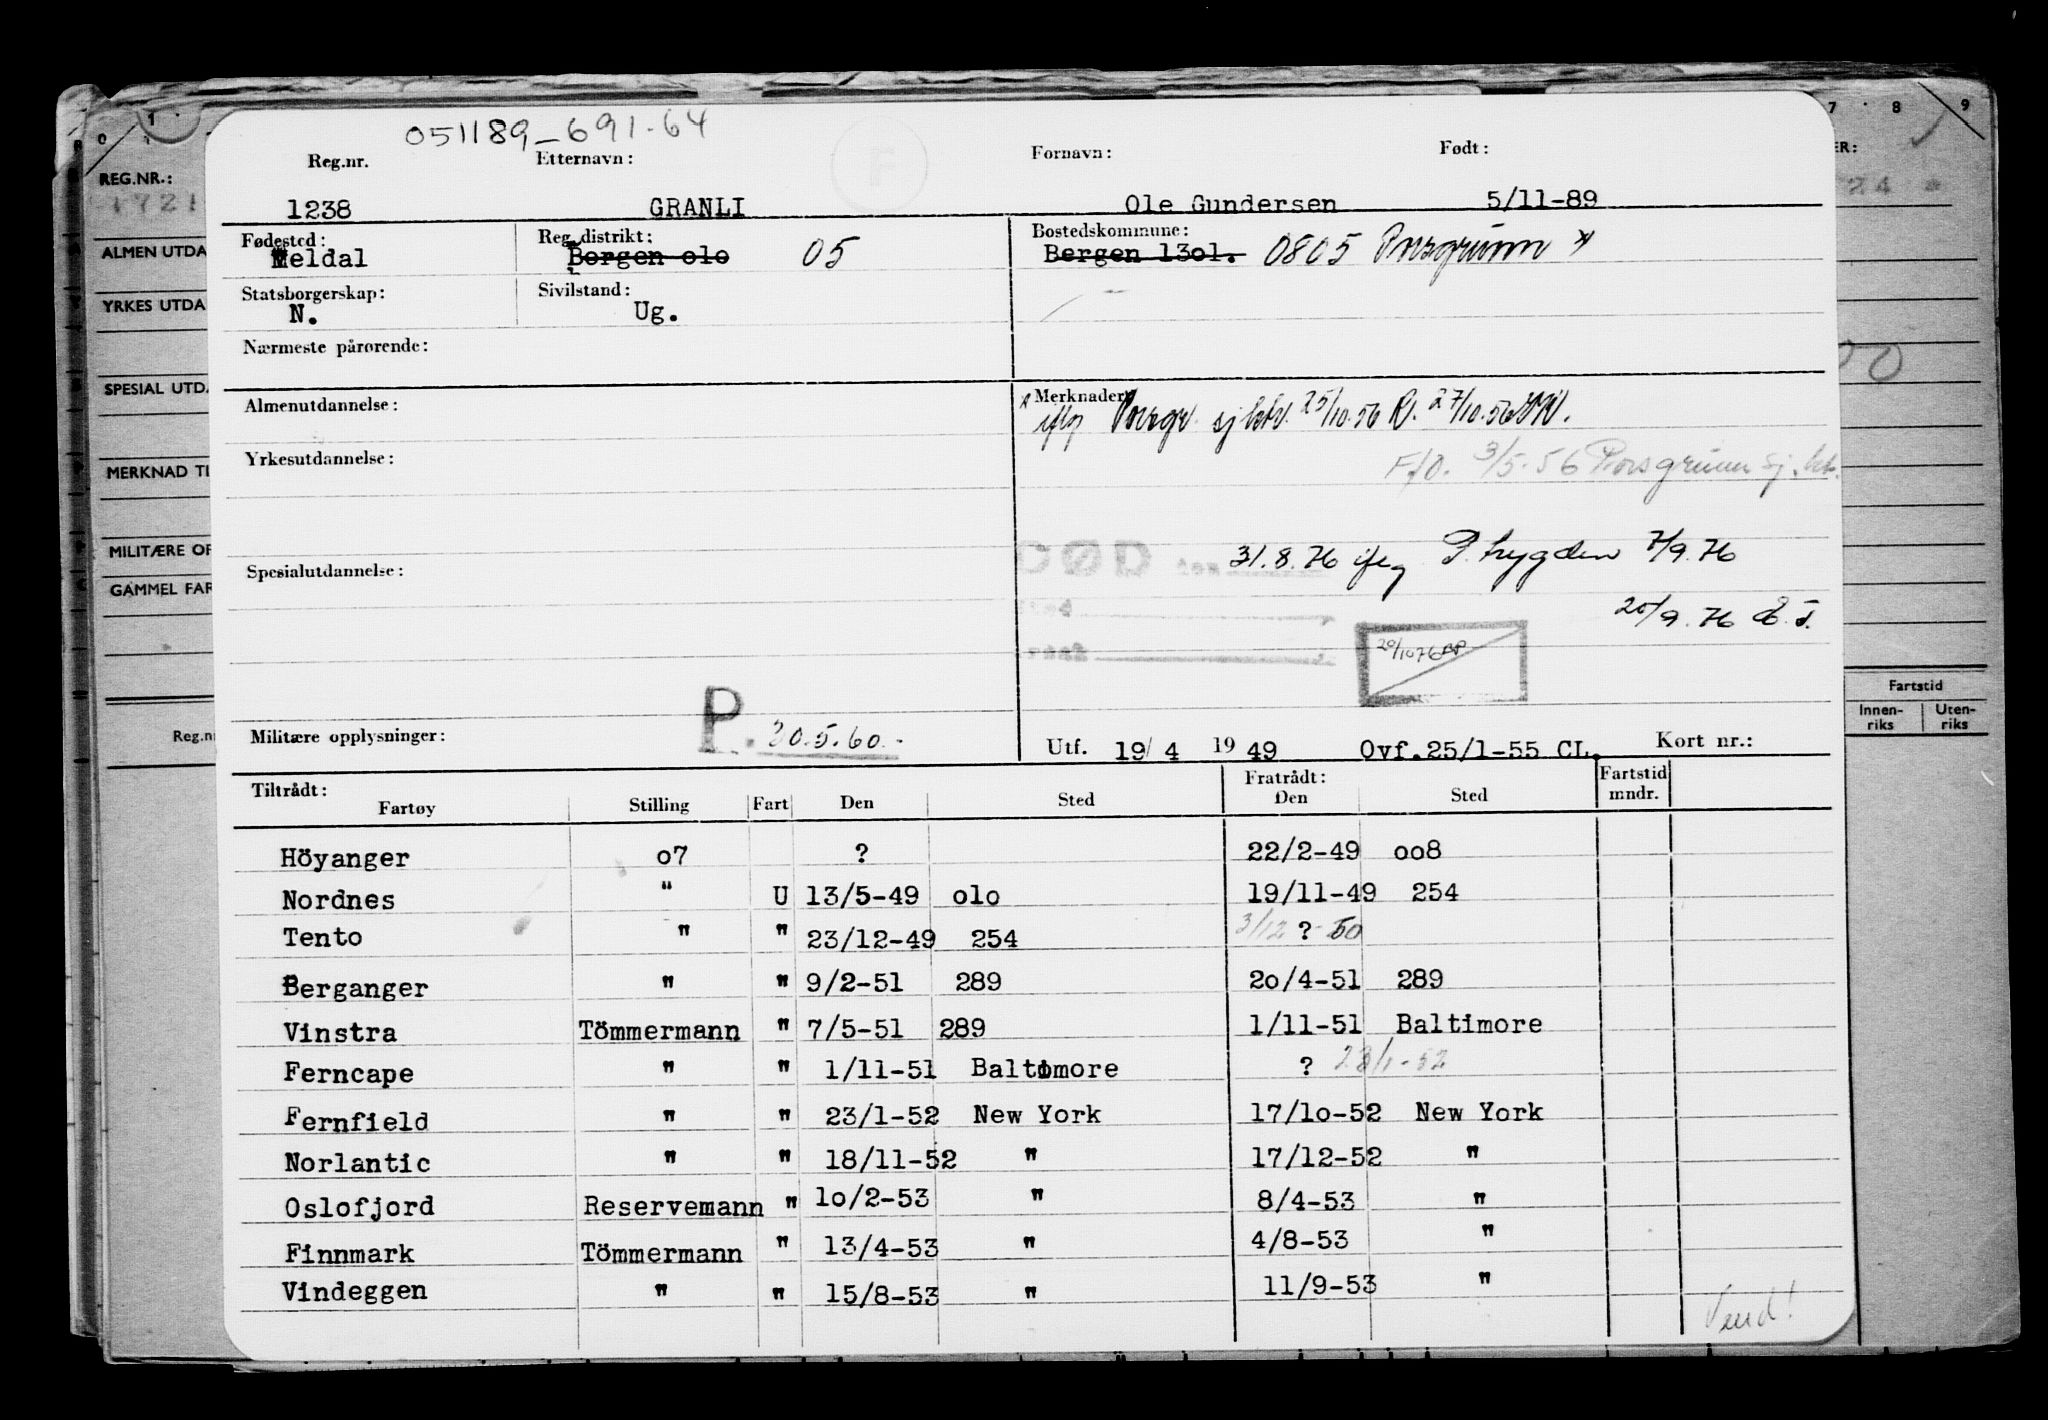 051189-691-64
Reg.nr. Etternavn: Fornavn: Født:
1238 GRANLI Ole Gundersen 5/11-89
Fødested: Reg. distrikt: Bostedskommune:
Meldal Bergen olo 05 Bergen 13ol. 0805 Porsgrunn *
Statsborgerskap: Sivilstand:
N. Ug.
Nærmeste pårørende:
Almenutdannelse: Merknader:
Porsgr. sj.ktr. 25/10.56 Kl. 27/10.56
Yrkesutdannelse:
F/O. 3/5-56 Porsgrunn sj.ktr.
DØD den 31.8.76 iflg P. trygden 7/9.76
Spesialutdannelse:
20/9.76
20/1076
P. 30.5.60.-
Militære opplysninger: Utf. 19/4 1949 Ovf.25/1-55 CL. Kort nr.:
Tiltrådt: Fratrådt: Fartstid
Fartøy Stilling Fart Den Sted Den Sted mndr.
Höyanger o7 ? 22/2-49 oo8
Nordnes " U 13/5-49 olo 19/11-49 254
Tento " " 23/12-49 254 3/12 ? 50
Berganger " " 9/2-51 289 2o/4-51 289
Vinstra Tömmermann " 7/5-51 289 1/11-51 Baltimore
Ferncape " " 1/11-51 Baltimore ? 23/1-52
Fernfield " " 23/1-52 New York 17/1o-52 New York
Norlantic " " 18/11-52 " 17/12-52 "
Oslofjord Reservemann " 1o/2-53 " 8/4-53 "
Finnmark Tömmermann " 13/4-53 " 4/8-53 "
Vindeggen " " 15/8-53 " 11/9-53 "
Vend!
REG.NR.:
ALMEN UTDA
YRKES UTDA
SPESIAL UTD.
MERKNAD TI
MILITÆRE OP
GAMMEL FAR
Reg.n
7 8 9
ER:
Fartstid
Innen-riks Uten-riks